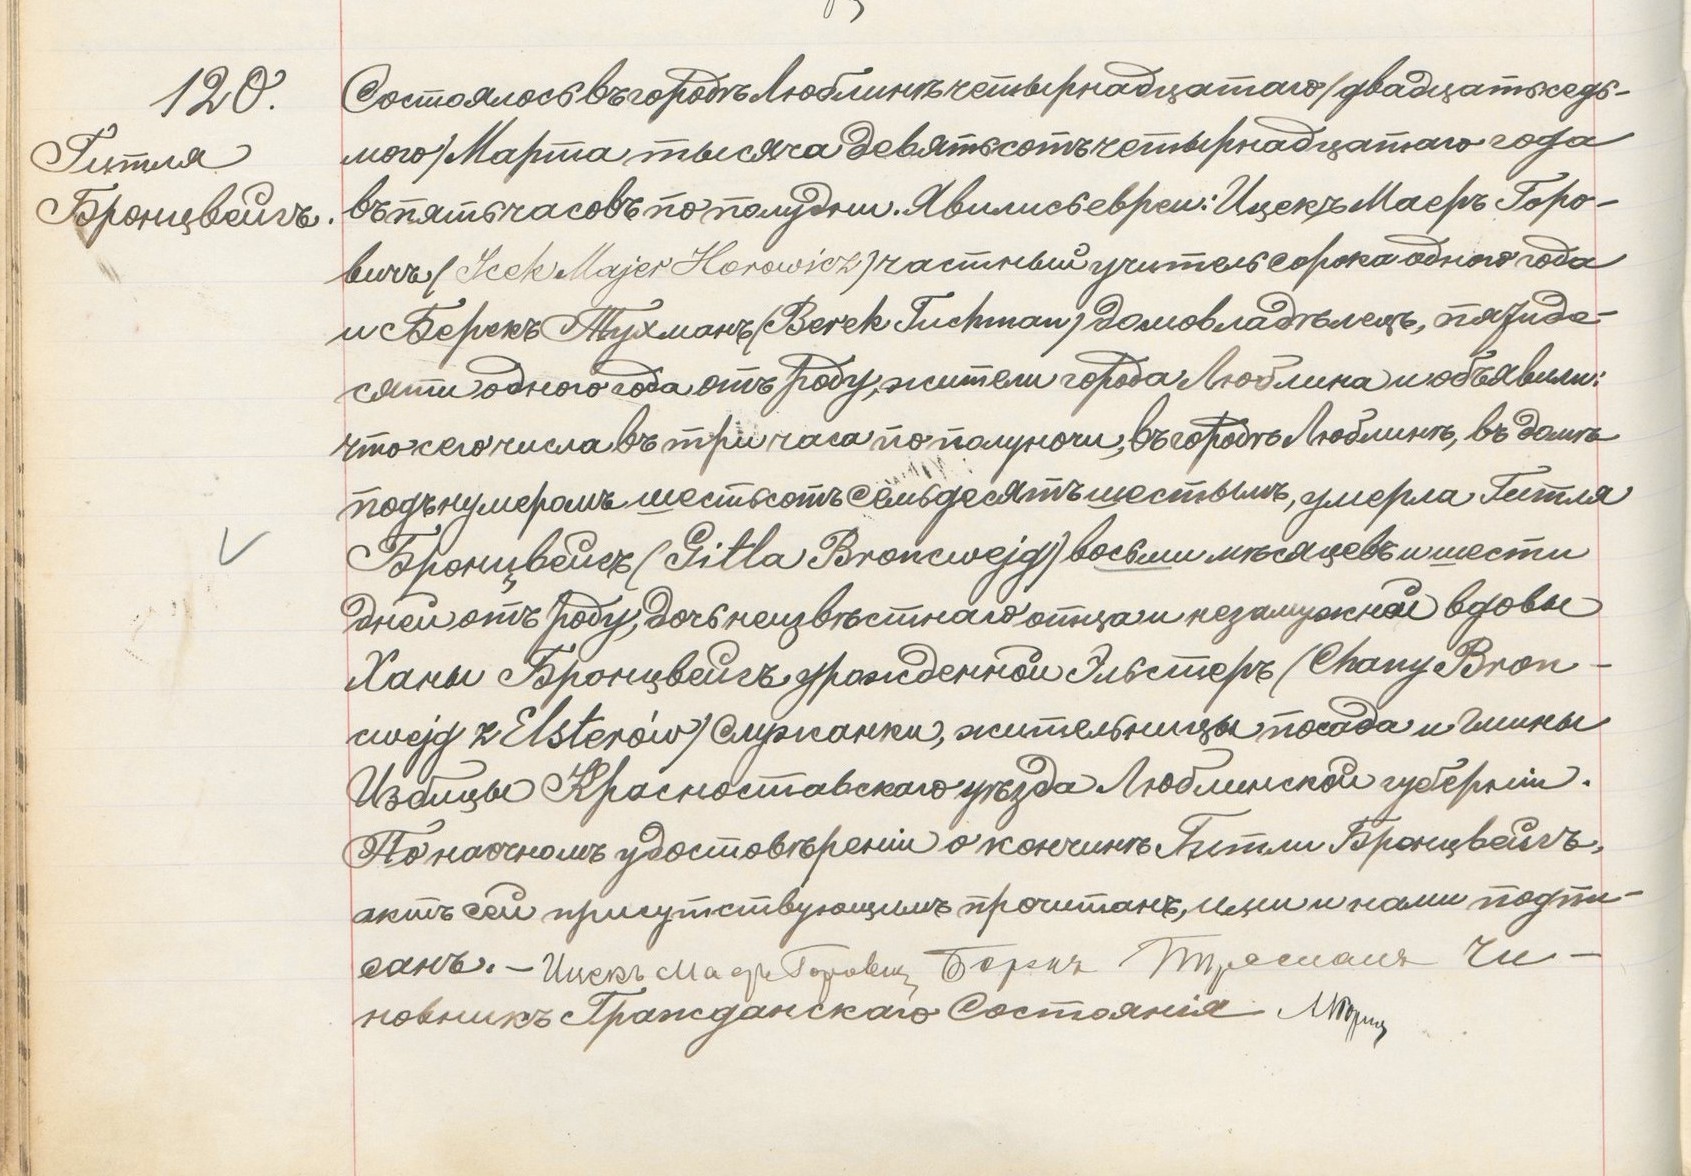 120.
Гитля
Бронцвейгъ.
Состоялось въ городѣ Люблинѣ четырнадцатаго / двадцать седь-
мого / Марта тысяча девятьсотъ четырнадцатаго года
въ пять часовъ по полудни. Явились евреи: Ицекъ Маеръ Горо-
вичъ ( Icek Majer Horowicz ) частный учитель сорока одного года
и Берекъ Тухманъ ( Berek Tuchman ) домовладѣлецъ, пятиде-
сяти одного года отъ роду, жители города Люблина и объявили:
что сего числа въ три часа по полуночи, въ городѣ Люблинѣ, въ домѣ
подъ нумеромъ шестьсотъ семьдесятъ шестымъ, умерла Гитля
Бронцвейгъ ( Gitla Broncwejg ) восьми мѣсяцевъ и шести
дней отъ роду, дочь неизвѣстнаго отца и незамужной вдовы
Ханы Бронцвейгъ урожденной Эльстеръ ( Chany Bron-
cwejg z Elsterów ) служанки, жительницы посада и гмины
Избицы Красноставскаго уѣзда Люблинской губерніи.
По наочномъ удостовѣреніи о кончинѣ Гитли Бронцвейгъ,
актъ сей присутствующимъ прочитанъ, ими и нами подпи-
санъ. – Ицекъ Маеръ Горовиц Чи-
новникъ Гражданскаго Состоянія